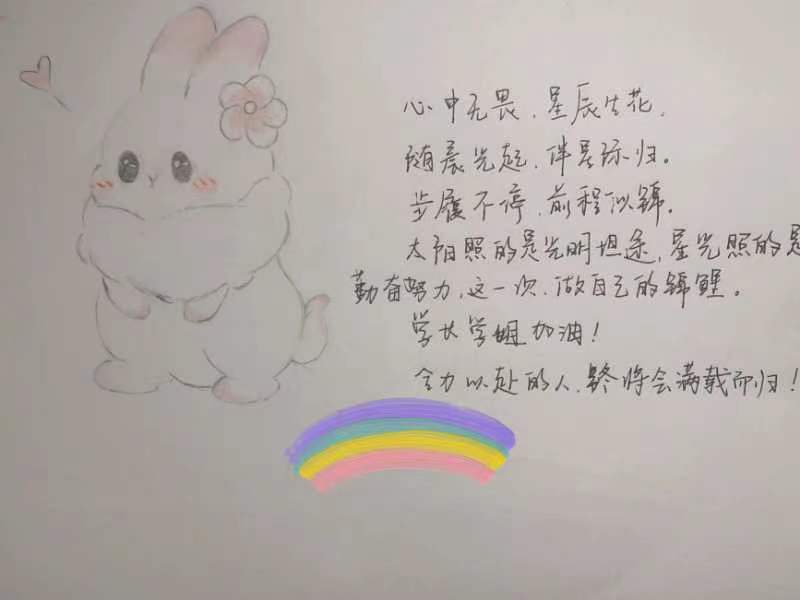 心中无畏、星辰生花，
随晨光起、伴星际归。
步履不停、前程似锦。
太阳照的是光明坦途，星光照的是
勤奋努力，这一次、做自己的锦鲤。
学长学姐加油！
全力以赴的人、终将会满载而归！